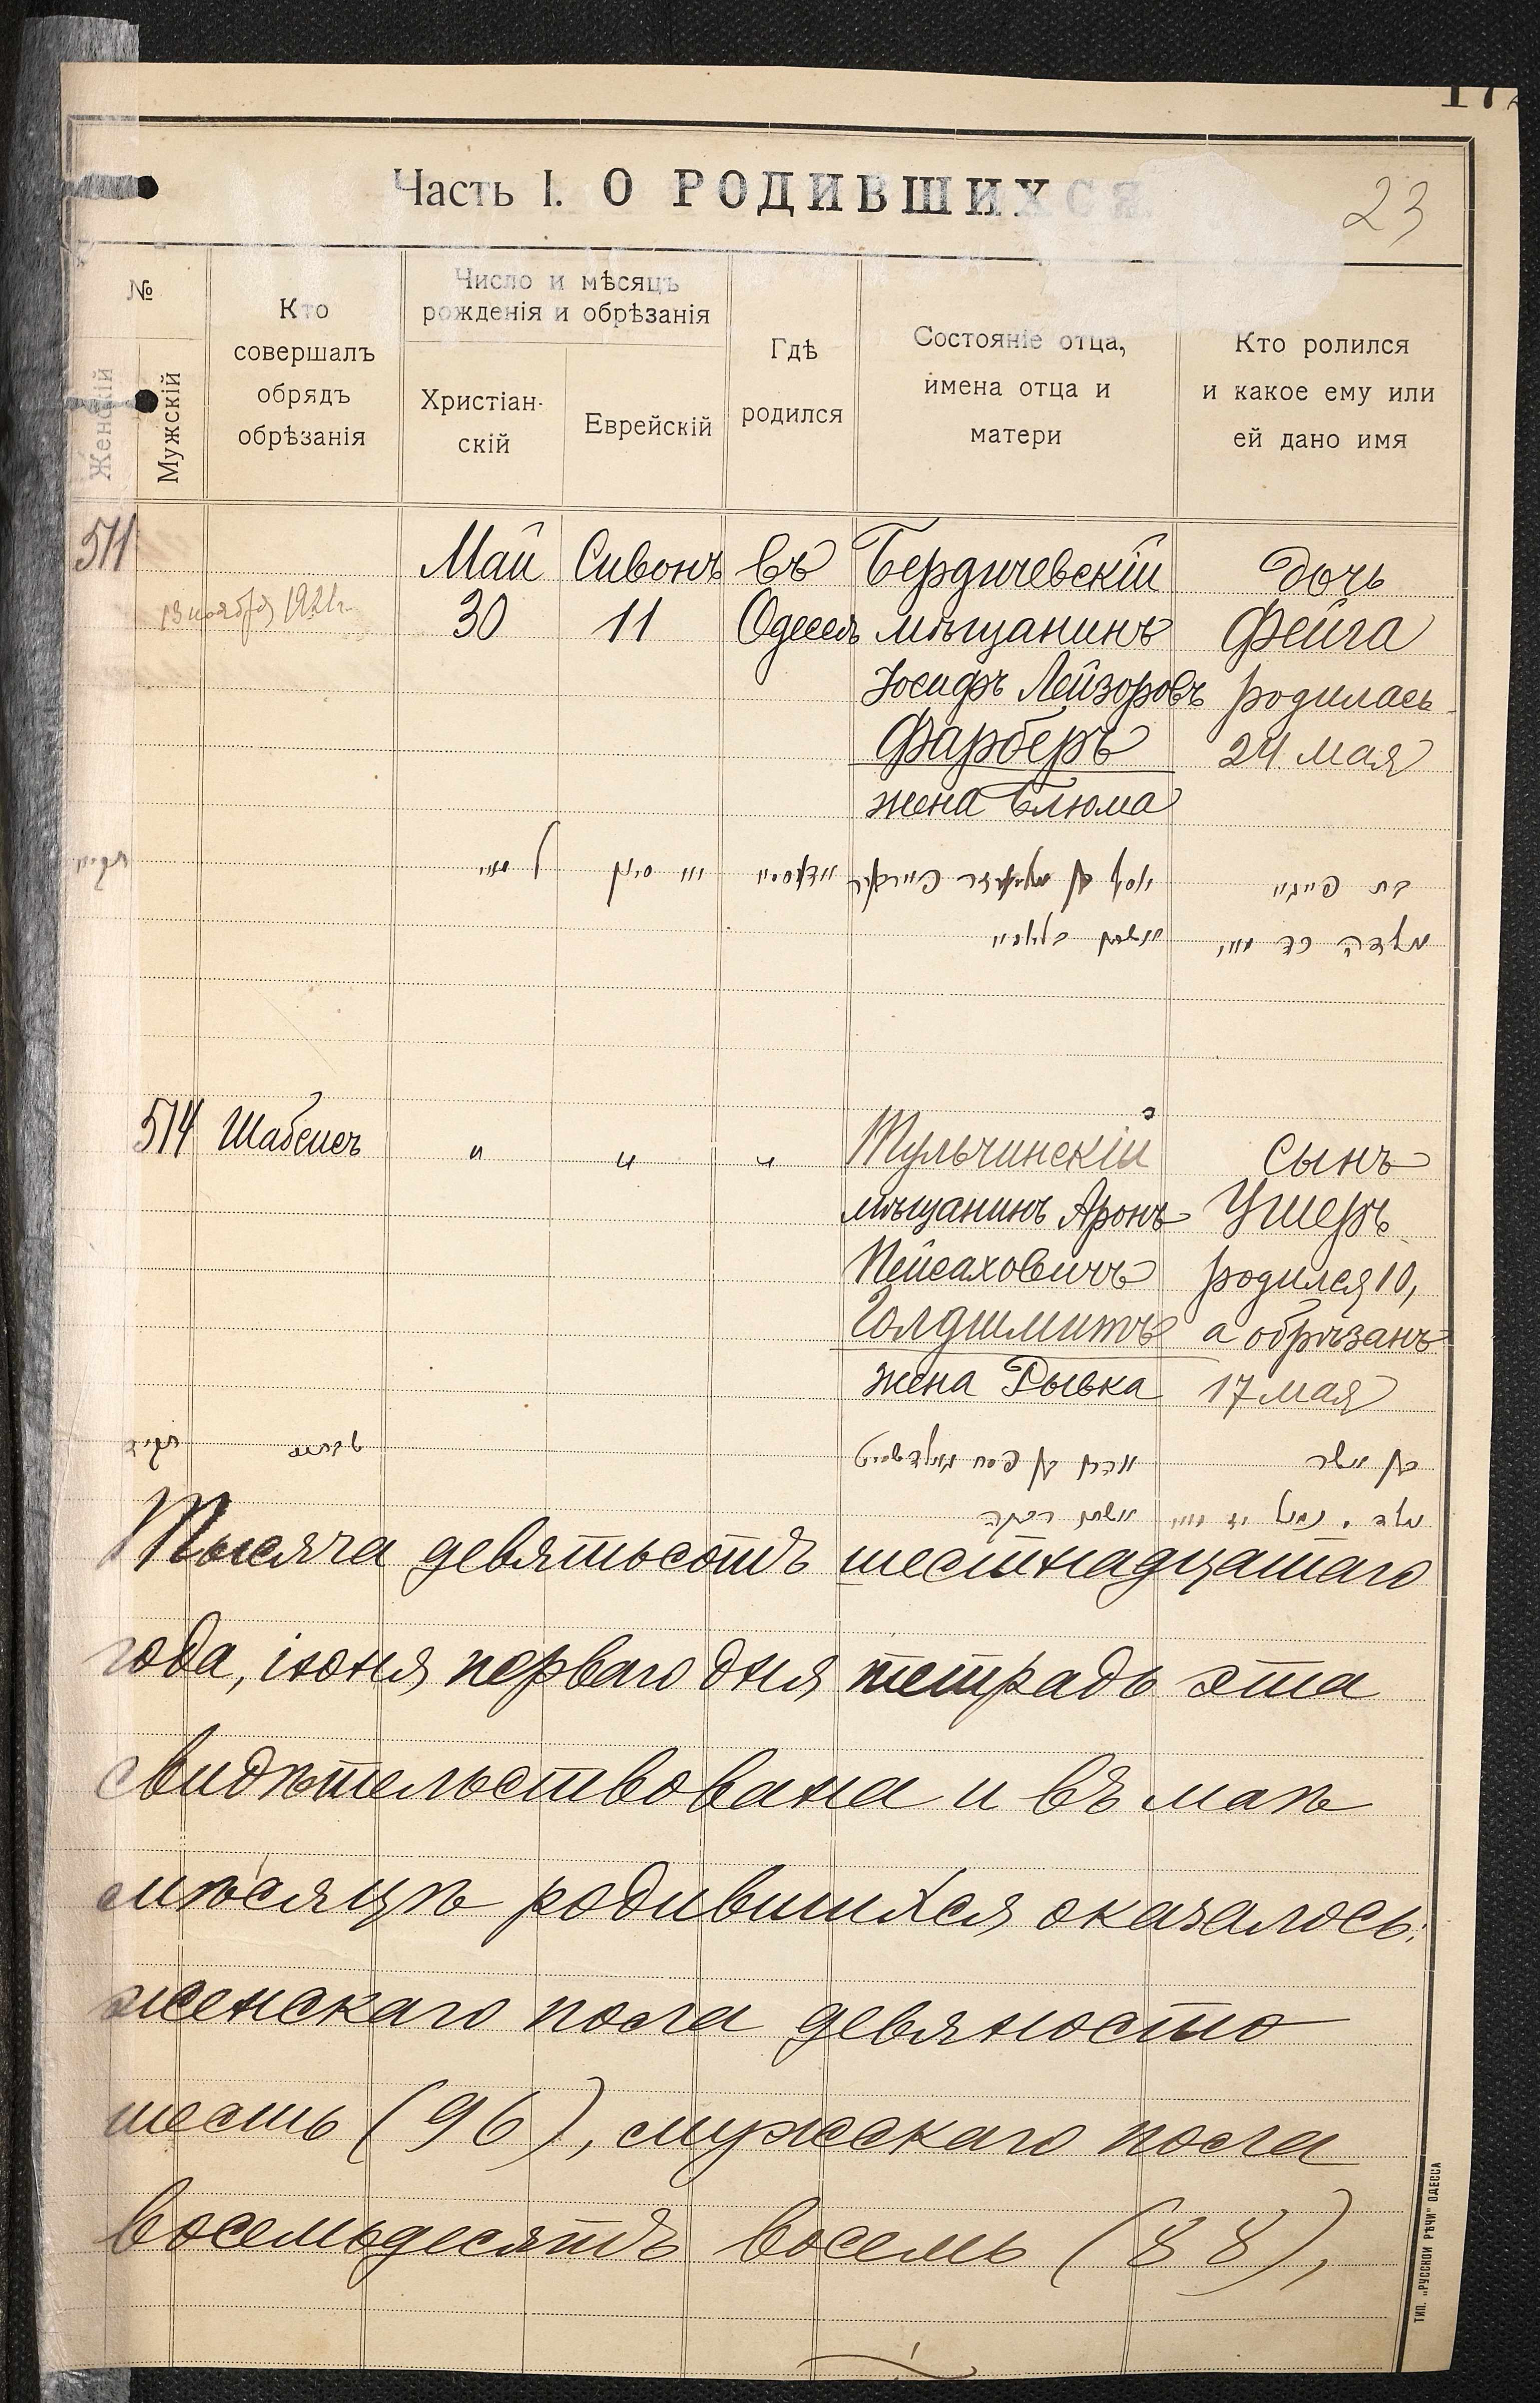 Часть I. О РОДИВШИХСЯ
23
№
Женскій
Мужскій
Кто
совершалъ
обрядъ
обрѣзанія
Число и мѣсяцъ
рожденія и обрѣзанія
Христіан-
скій
Еврейскій
Гдѣ
родился
Состояніе отца,
имена отца и
матери
Кто ролился
и какое ему или
ей дано имя
511
13 ноября 1921 г.
Май
30
Сивонъ
11
въ
Одессѣ
Бердичевскій
мѣщанинъ
Іосифъ Лейзоровъ
Фарберъ
жена Блюма
дочь
Фейга
родилась
24 мая
514
Шабсисъ
"
"
"
Тульчинскій
мѣщанинъ Аронъ
Пейсаховичъ
Голдшмитъ
жена Рывка
сынъ
Ушеръ
родился 10,
а обрѣзанъ
17 мая
Тысяча девятьсотъ шестнадцатаго
года, іюня перваго дня тетрадь эта
свидѣтельствована и въ маѣ
мѣсяцѣ родившихся оказалось:
женскаго пола девяносто
шесть (96), мужескаго пола
восемьдесятъ восемь (88),
ТИП. „РУССКОЙ РѢЧИ" ОДЕССА